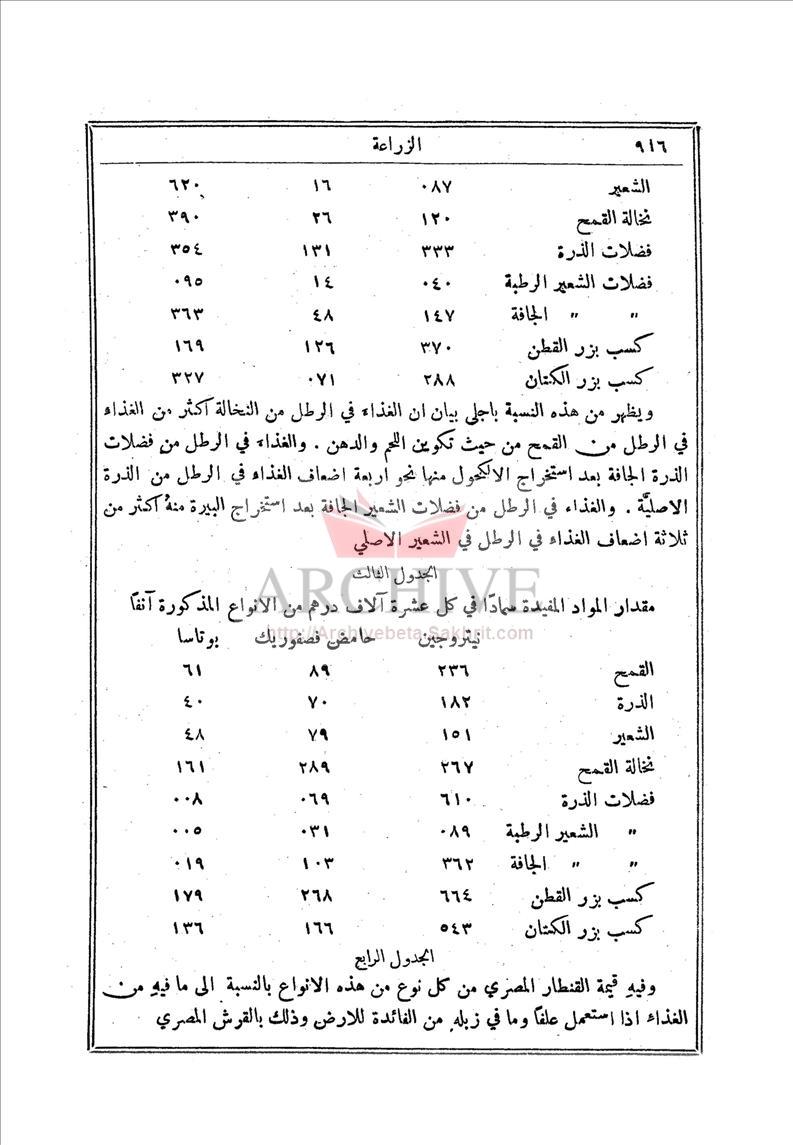 ٩١٦ الزراعة
الشعير ٠٨٧ ١٦ ٦٢٠
نخالة القمح ١٢٠ ٢٦ ٣٩٠
فضلات الذرة ٣٣٣ ١٣١ ٣٥٤
فضلات الشعير الرطبة ٠٤٠ ١٤ ٠٩٥
" " الجافة ١٤٧ ٤٨ ٣٦٣
كسب بزر القطن ٣٧٠ ١٢٦ ١٦٩
كسب بزر الكتان ٢٨٨ ٠٧١ ٣٢٧
ويظهر من هذه النسبة باجلى بيان ان الغذاء في الرطل من النخالة اكثر من الغذاء
في الرطل من القمح من حيث تكوين اللحم والدهن . والغذاء في الرطل من فضلات
الذرة الجافة بعد استخراج الالكحول منها نحو اربعة اضعاف الغذاء في الرطل من الذرة
الاصليَّة . والغذاء في الرطل من فضلات الشعير الجافة بعد استخراج البيرة منهُ اكثر من
ثلاثة اضعاف الغذاء في الرطل في الشعير الاصلي
الجدول الثالث
ARCHIVE
مقدار المواد المفيدة سمادًا في كل عشرة آلاف درهم من الانواع المذكورة آنفًا
http://Archivebeta.Sakhrit.com
نيتروجين حامض فصفوريك بوتاسا
القمح ٢٣٦ ٨٩ ٦١
الذرة ١٨٢ ٧٠ ٤٠
الشعير ١٥١ ٧٩ ٤٨
نخالة القمح ٢٦٧ ٢٨٩ ١٦١
فضلات الذرة ٦١٠ ٠٦٩ ٠٠٨
" الشعير الرطبة ٠٨٩ ٠٣١ ٠٠٥
" " الجافة ٣٦٢ ١٠٣ ٠١٩
كسب بزر القطن ٦٦٤ ٢٦٨ ١٧٩
كسب بزر الكتان ٥٤٣ ١٦٦ ١٣٦
الجدول الرابع
وفيهِ قيمة القنطار المصري من كل نوع من هذه الانواع بالنسبة الى ما فيهِ من
الغذاء اذا استعمل علفًا وما في زبله من الفائدة للارض وذلك بالقرش المصري